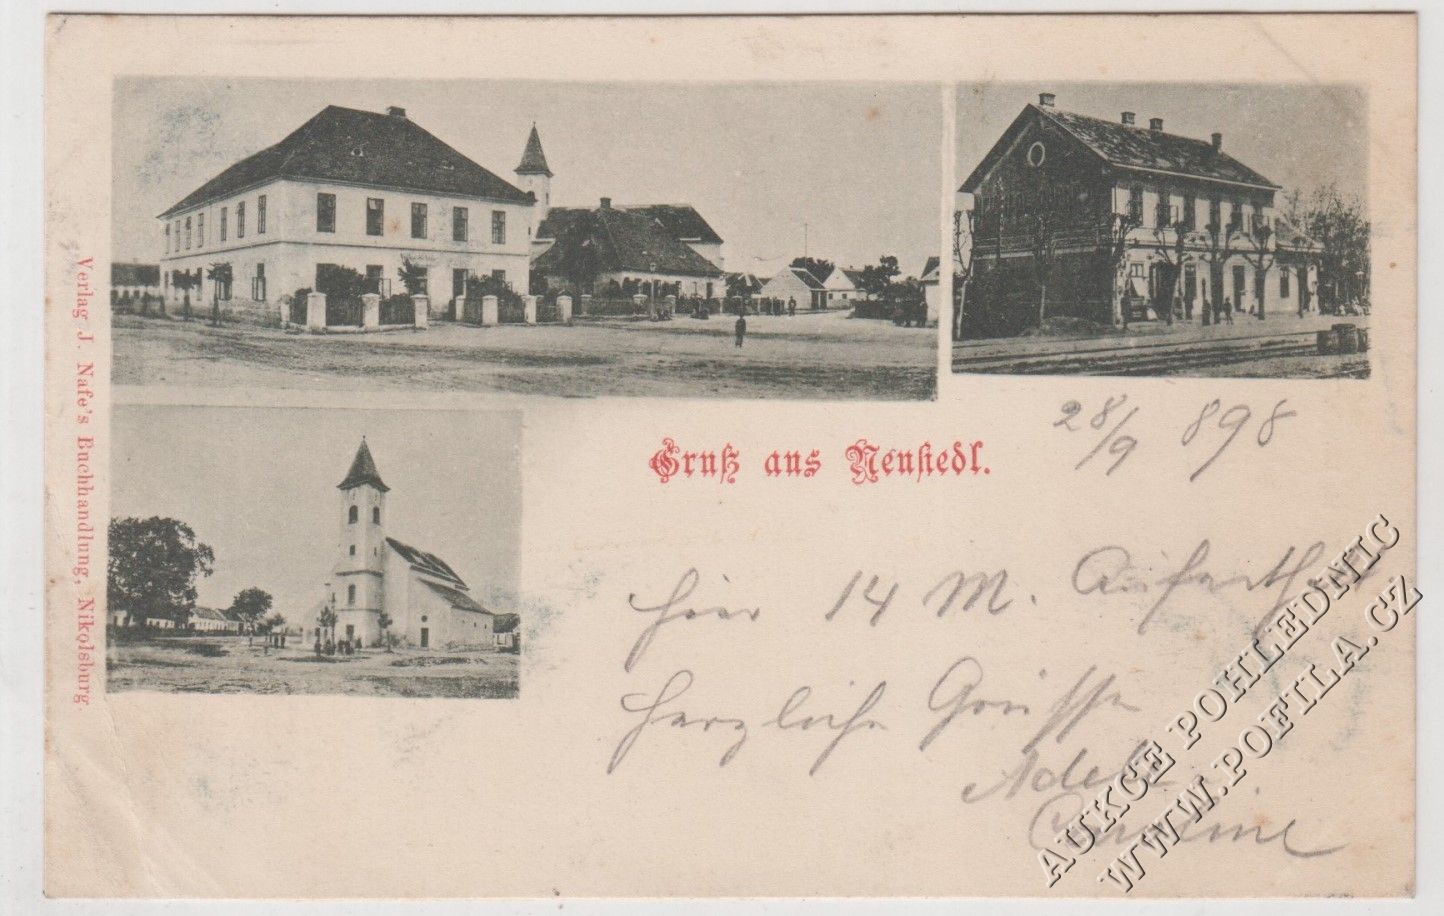 Gruß aus Neusiedl.
28/9 898
Hier 14 M. Aufenth
Herzliche Grüsse
Adele
Caroline
Verlag J. Nafe's Buchhandlung, Nikolsburg.
AUKCE POHLEDNIC
WWW.POFILA.CZ